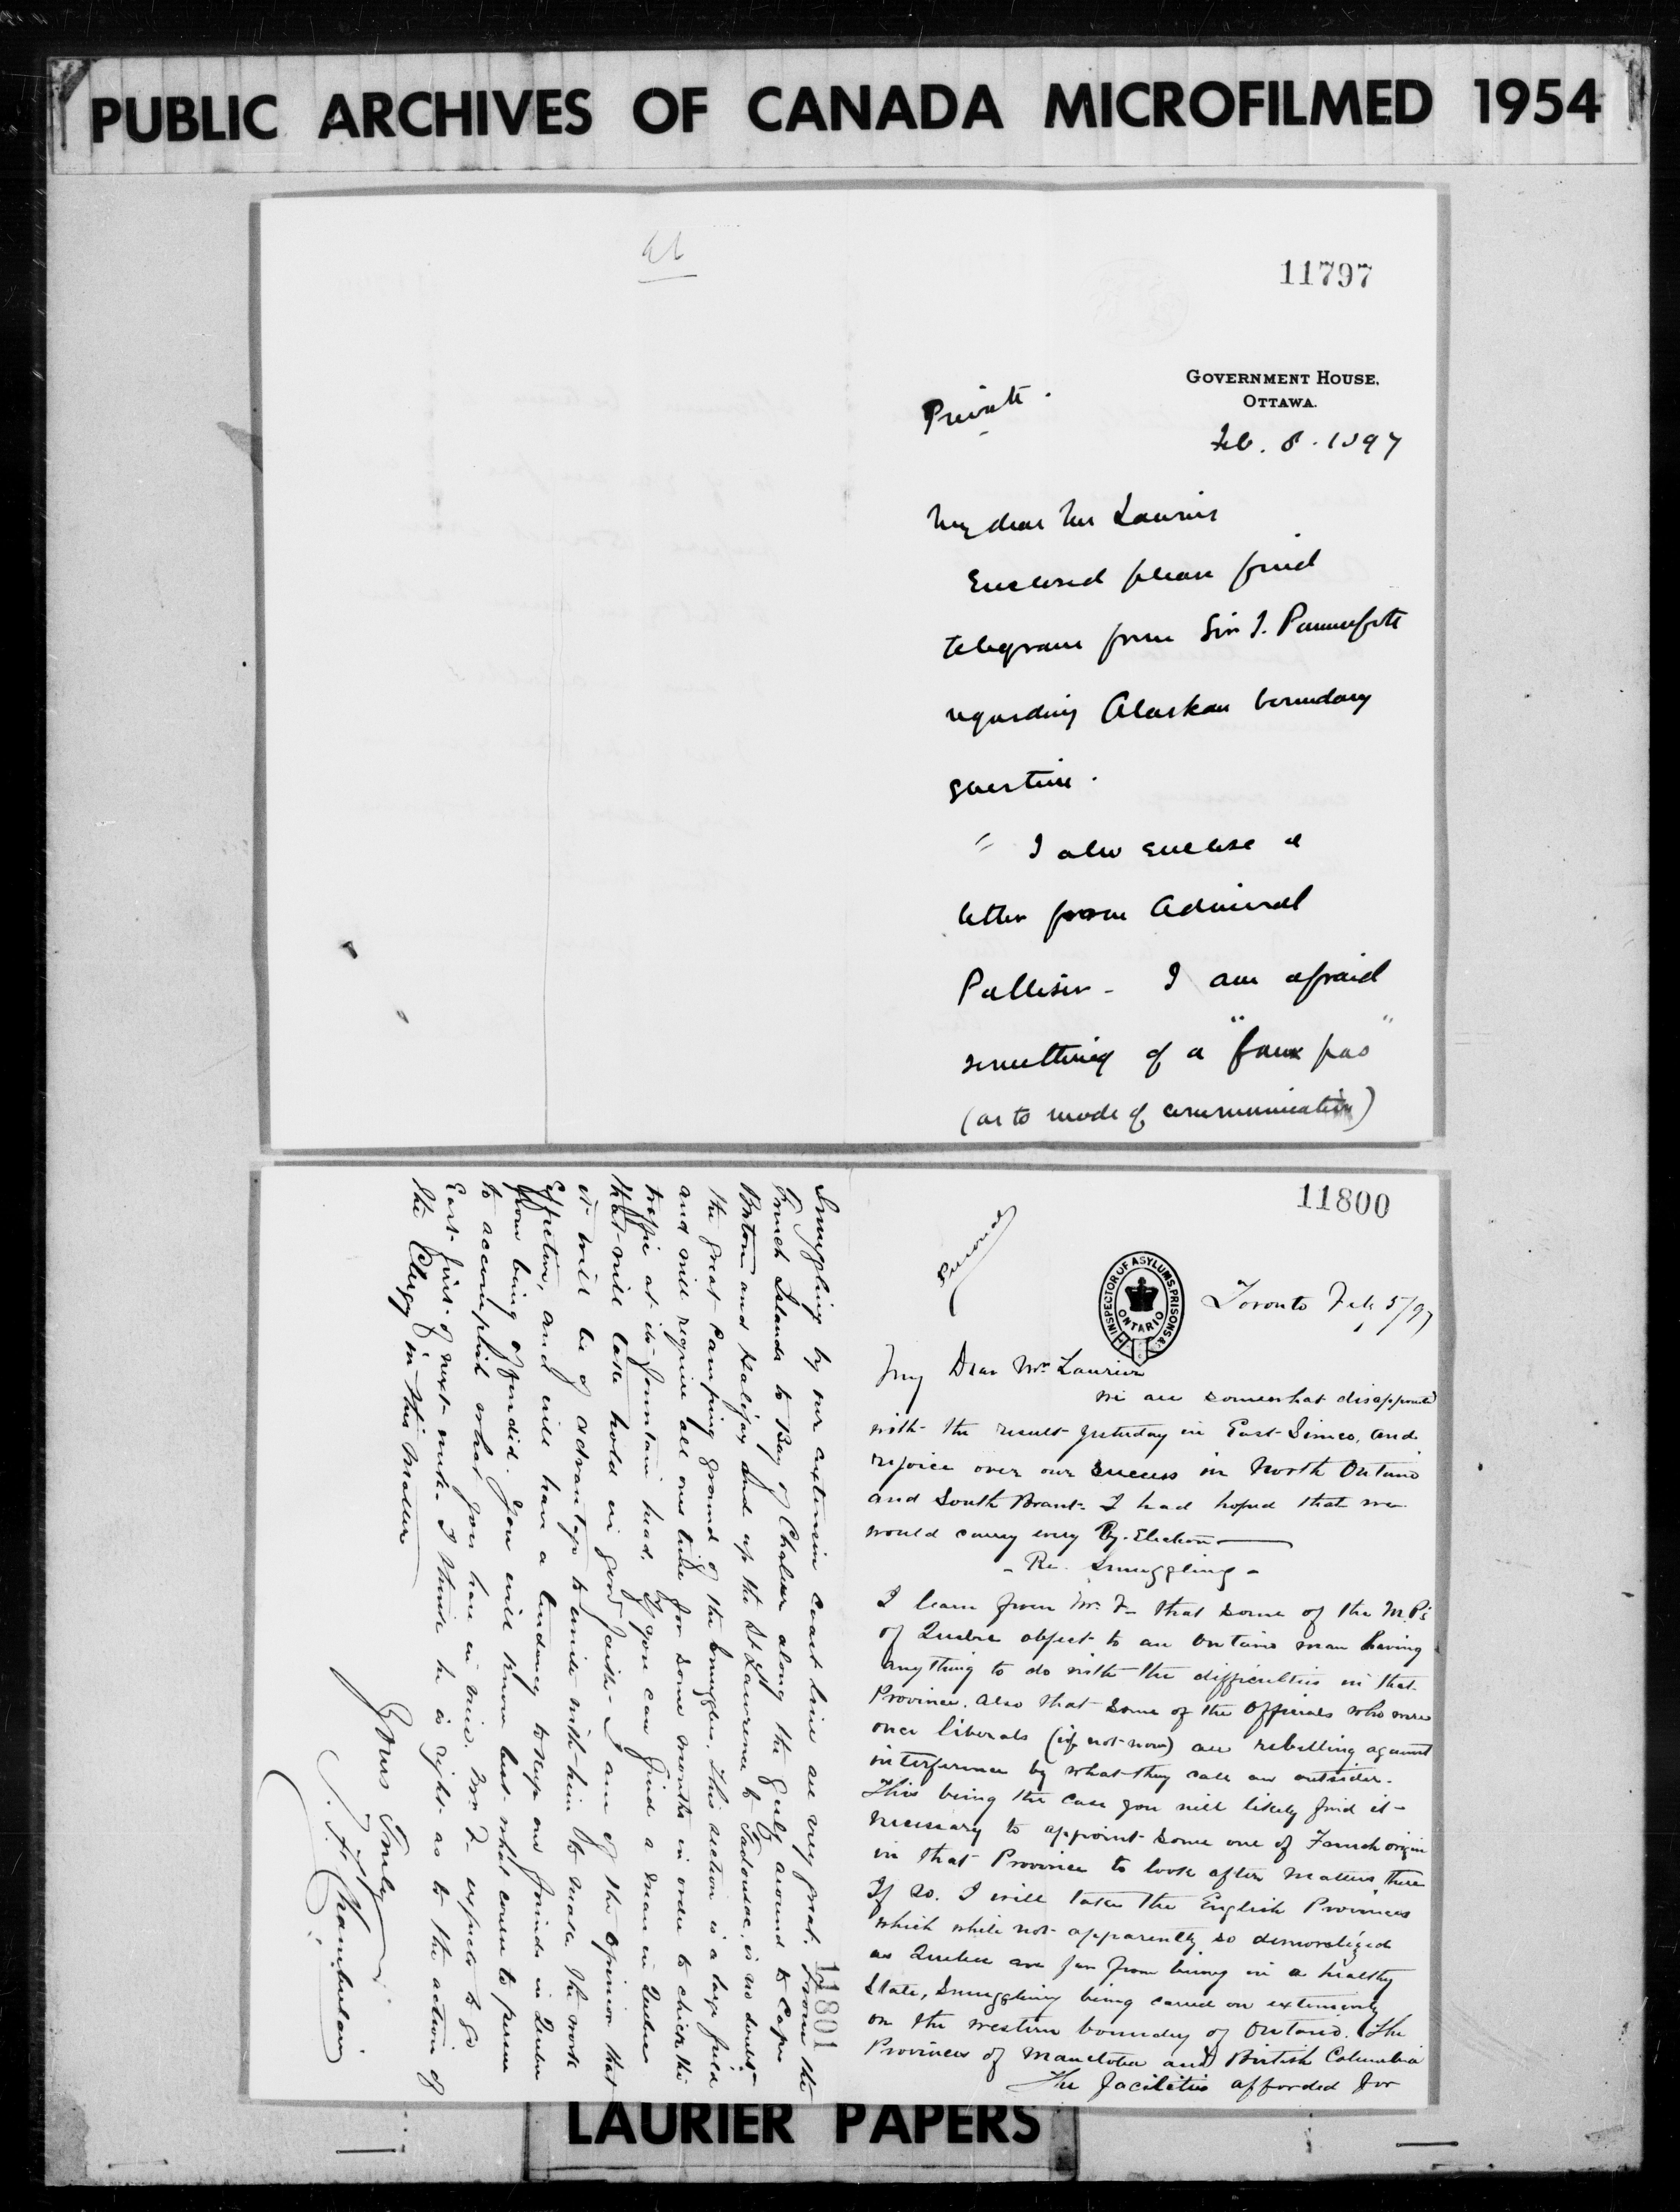 PUBLIC ARCHIVES OF CANADA MICROFILMED 1954
11797
GOVERNMENT HOUSE,
OTTAWA.
Private.
Feb. 8. 1897
My dear Mr Laurier
Enclosed please find
telegram from Sir J. Pauncefote
regarding Alaskan boundary
question.
" I also enclose a
letter from Admiral
Palliser - I am afraid
something of a "faux pas"
(as to mode of communication)
11800
Personal
INSPECTOR OF ASYLUMS, PRISONS &c.
ONTARIO
Toronto Feby 5/97
My Dear Mr Laurier
We are somewhat disappointed
with the result yesterday in East Simcoe, and
rejoice over our success in North Ontario
and South Brant. I had hoped that we
would carry every By. Election
- Re. Smuggling -
I learn from Mr. F- that some of the M.P's
of Quebec object to an Ontario man having
anything to do with the difficulties in that
Province. Also that some of the Officials who were
once liberals (if not now) are rebelling against
interference by what they call an outsider.
This being the case you will likely find it
necessary to appoint some one of French origin
in that Province to look after matters there
If so. I will take the English Provinces
which while not apparently so demoralized
as Quebec are far from being in a healthy
State, Smuggling being carried on extensively
on the western boundry of Ontario. The
Provinces of Manitoba and British Columbia
The facilities afforded for
11801
Smuggling by our extensive coast line are very great. From the
French Islands to Bay of Chaleur along the Gulf around to Cape
Breton and Halifax and up the St Lawrence to Tadousac, is no doubt
the great camping ground of the Smuggler. This section is a large field
and will require all our time for some months in order to check the
traffic at its fountain head. If you can find a man in Quebec
that will take hold in good faith - I am of the opinion that
it will be of advantage to unite with him to make the work
effective, and will have a tendency to keep our friends in Quebec
from being offended. You will know best what course to pursue
to accomplish what you have in view. Mr F expects to go
East first of next week. I think he is right as to the action of
the Clergy in this matter
Yours Truly
Chamberlain
LAURIER PAPERS